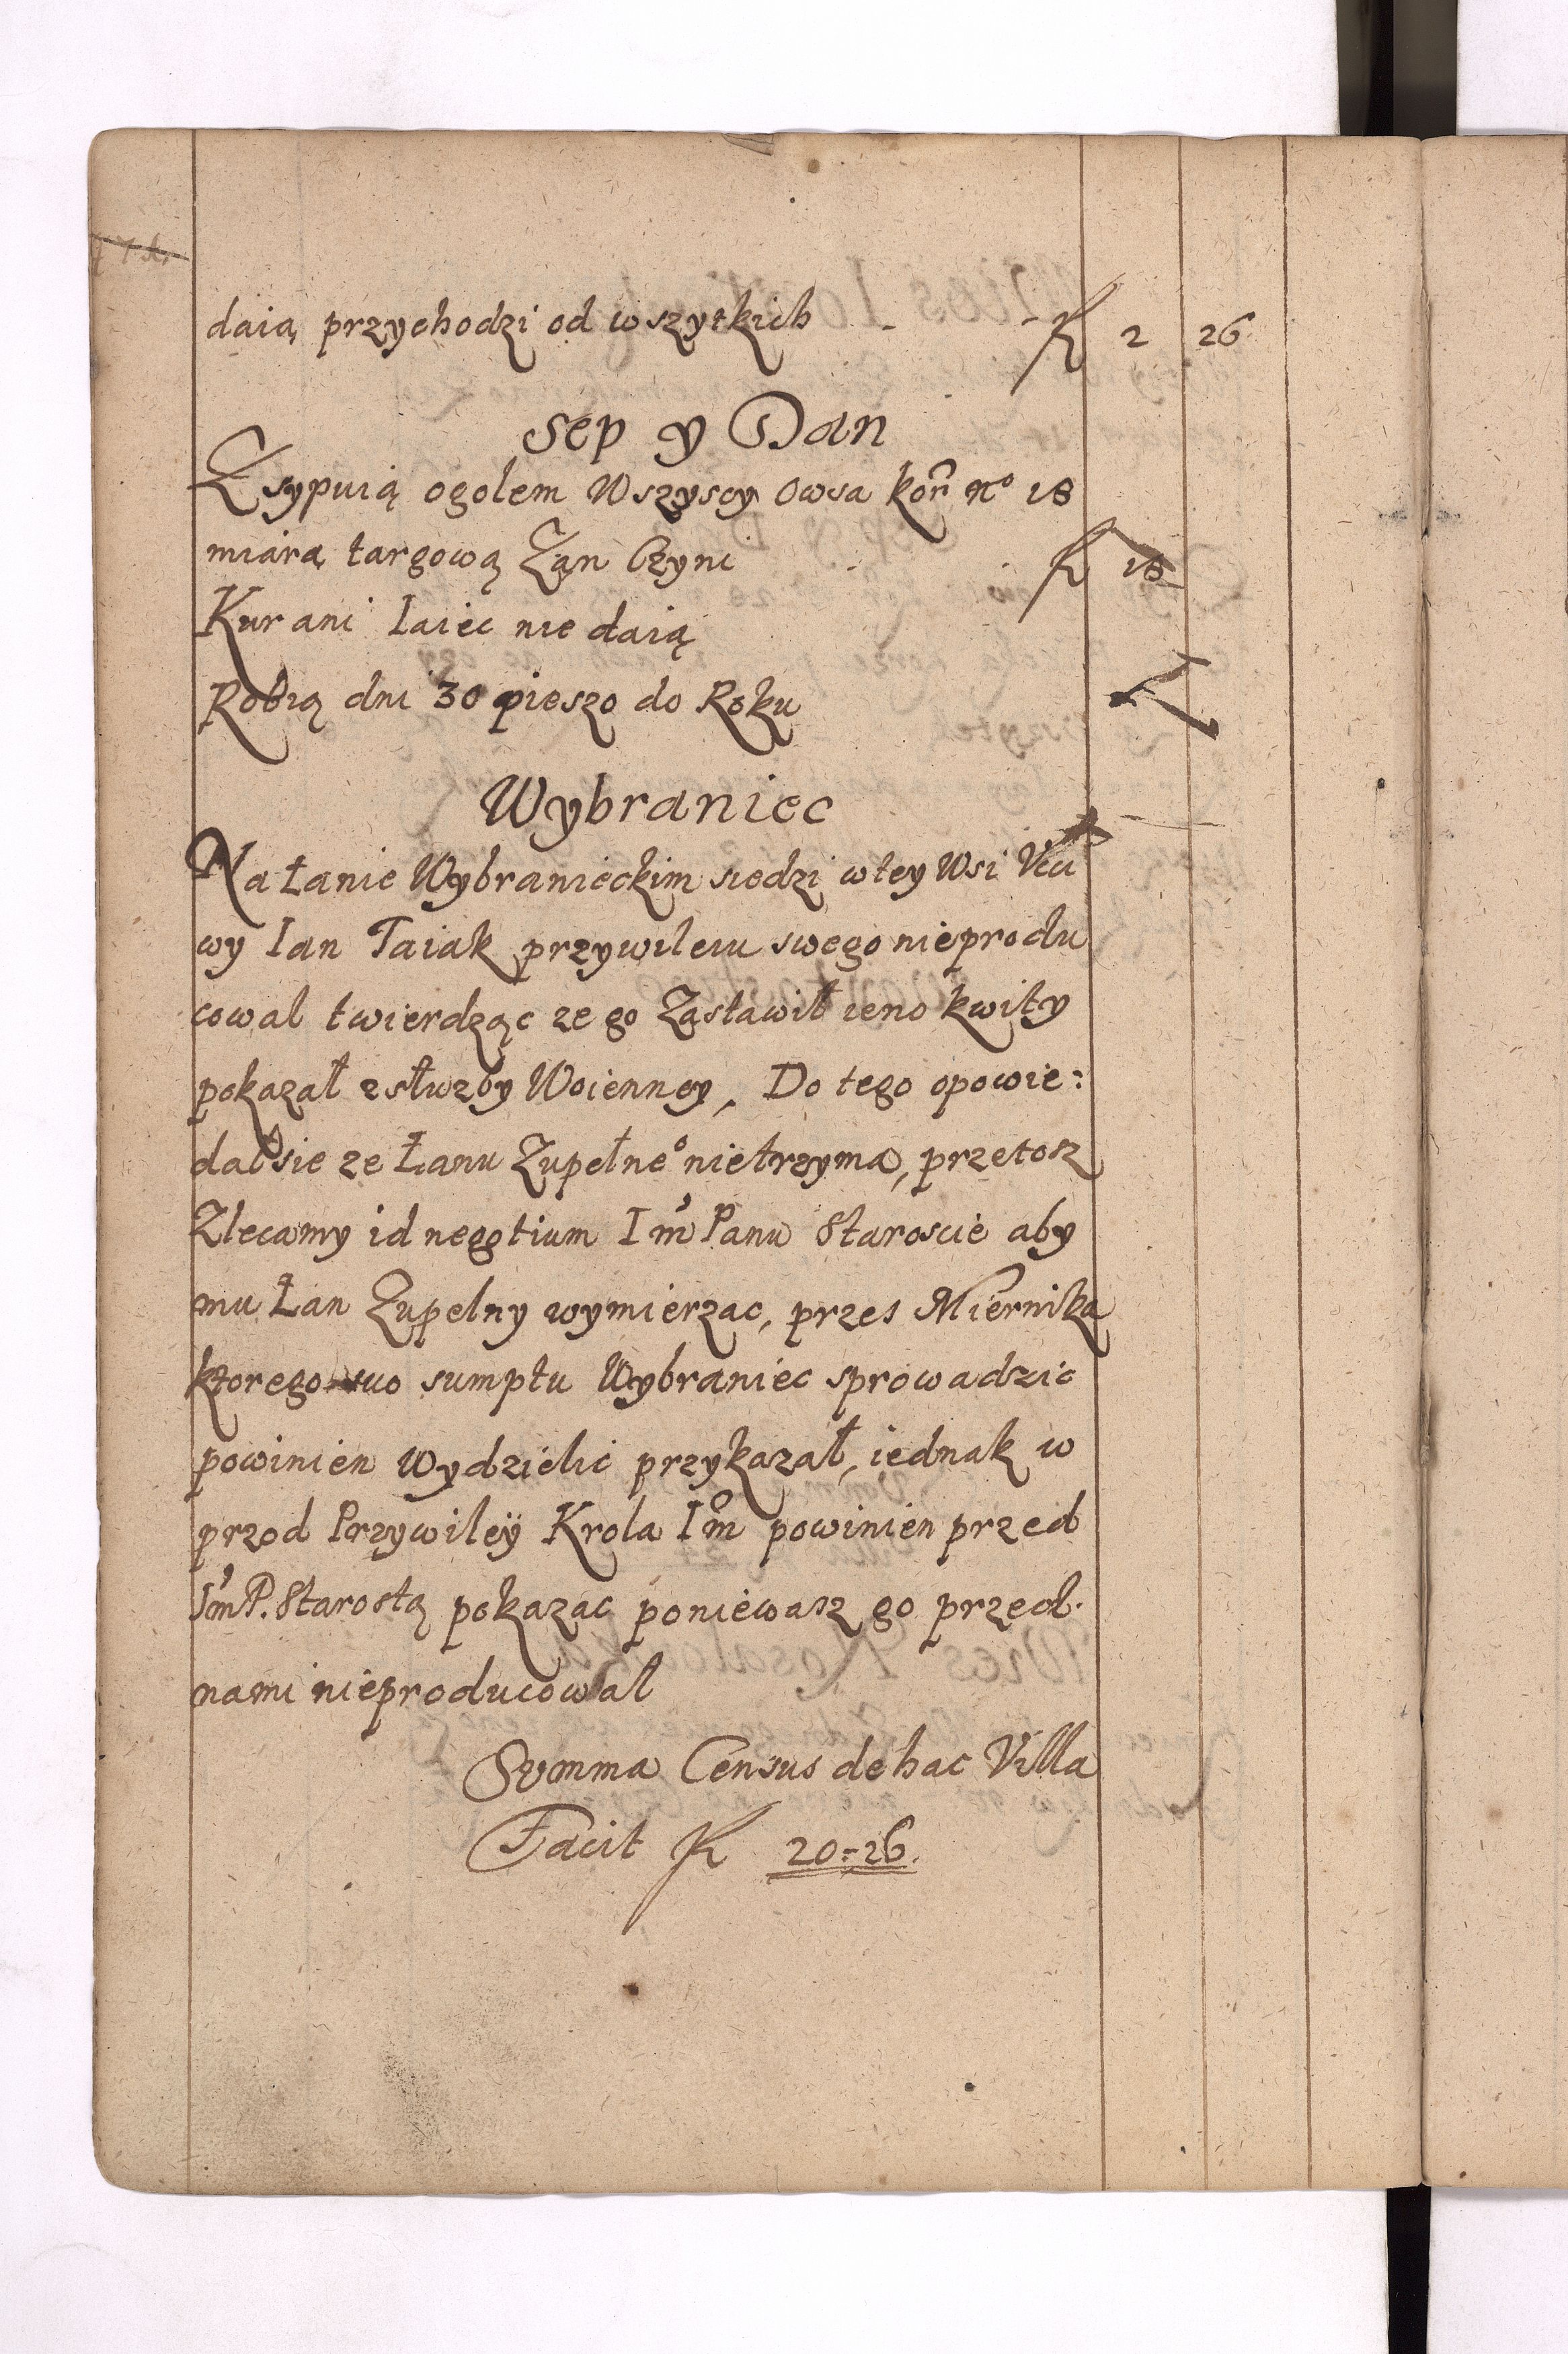 daią przychodzi od wszytkich - - fl 2 26
Sep y Dan
Zsypuią ogolem Wszyscy Owsa kor̃ nº 18
miarą targową Zan Czyni fl 18
Kur ani Iaiec nie daią
Robią dni 30 pieszo do Roku
Wybraniec
Na Łanie Wybranieckim siedzi w tey Wsi
wy Ian Taiak przywileiu swego nieprodu
cowal twierdząc ze go Zastawił ieno kwity
pokazał z słuzby Woienney, Do tego opowie:
dał sie ze Łanu Zupełneº nietrzyma, przetosz
Zlecamy id negotium Im Panu Staroscie aby
mu Łan Zupelny wymierzac, przes Miernika
ktorego suo sumptu Wybraniec sprowadzic
powinien Wydzielic przykazał, iednak w
przod Przywiley Krola Im powinien przed
Im P. Starostą pokazac poniewasz go przed
nami nieproducował
Summa Census de hac Villa
Facit fl 20=26.